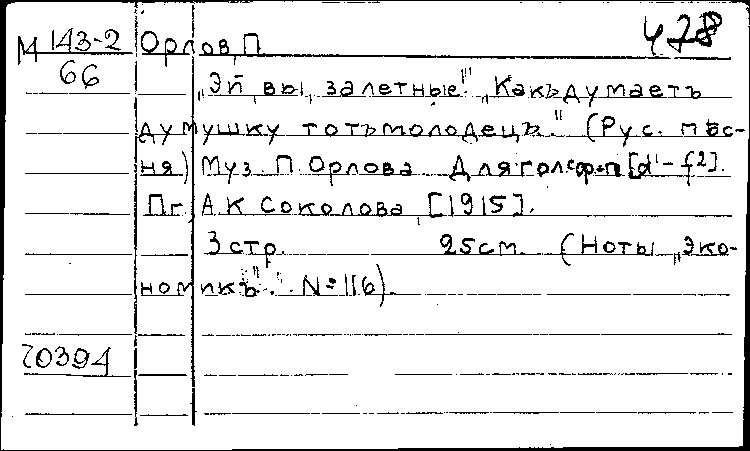 478
М 143-2 Орлов, П.
66
„Эй, вы, залетные". „Какъ думаетъ
думушку тотъ молодецъ." (Рус. пѣс-
ня) Муз. П. Орлова. Для гол. с ф.-п. [d¹-f²].
Пг., А.К. Соколова, [1915].
3 стр. 25 см. (Ноты „Эко-
номикъ". № 116).
70394